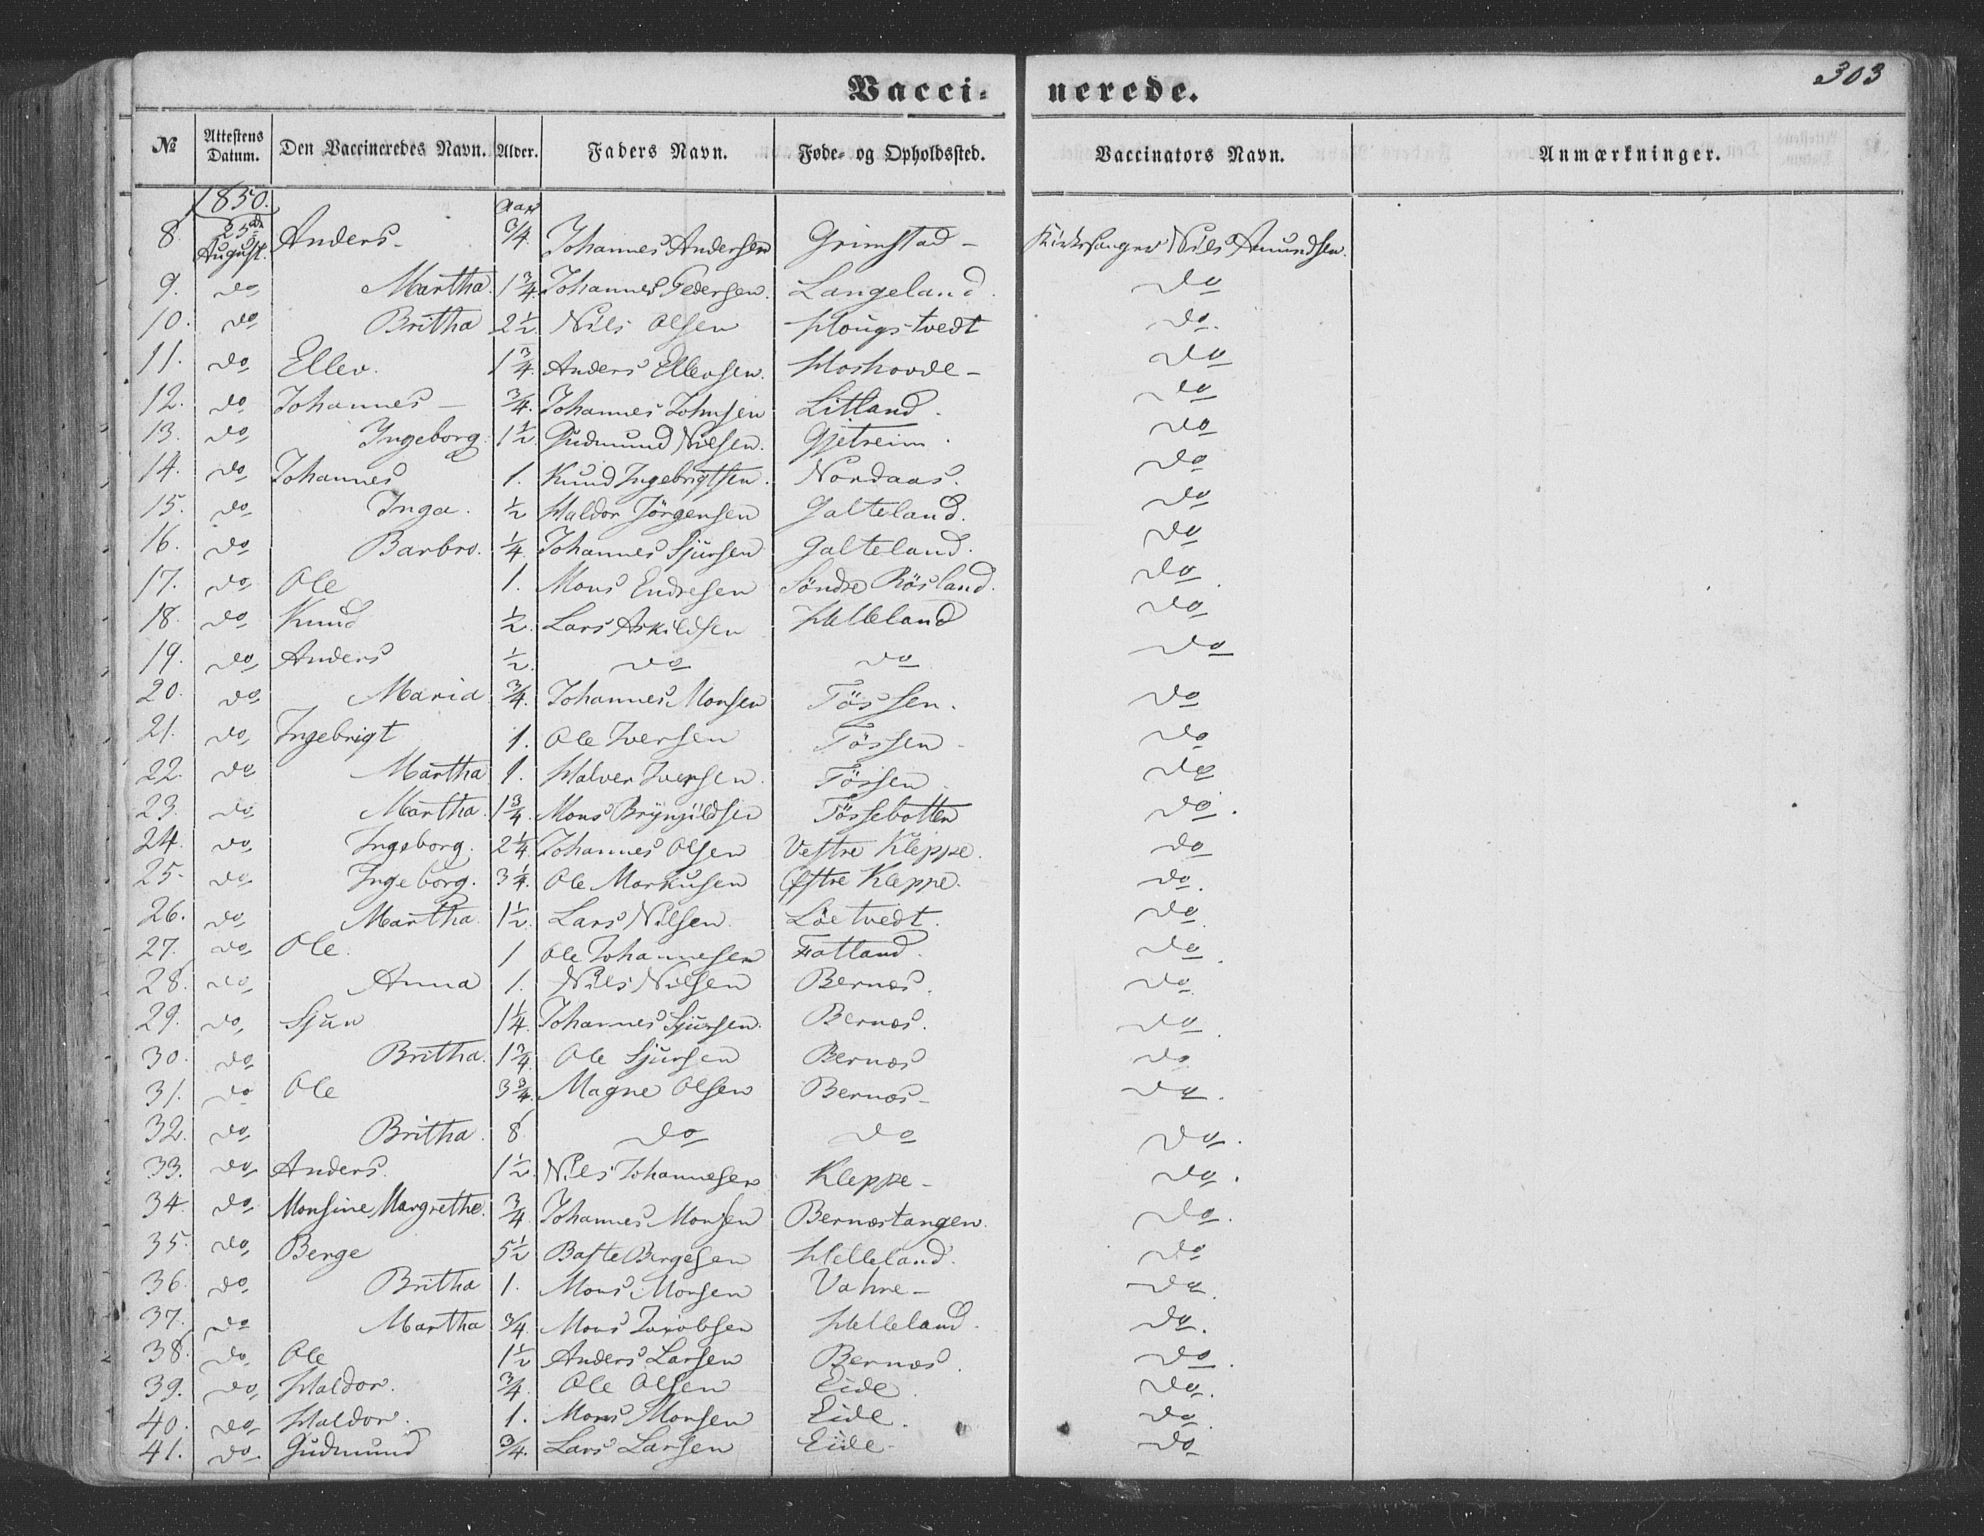 303
Vacci- nerede.
№ Attestens Datum. Den Vaccineredes Navn. Alder. Faders Navn. Føde- og Opholdssted. Vaccinators Navn. Anmærkninger.
1850. Aar
8. 25de August. Anders - 3/4 Johannes Andersen Grimstad - Kirkesanger Niels Amundsen.
9. do Martha. 1 3/4 Johannes Pedersen. Langeland. do
10. do Britha 2 1/2 Nils Olsen Hougstvedt do.
11. do Ellev. 1 3/4 Anders Ellevsen. Hoshovde - do
12. do Johannes - 3/4. Johannes Johnsen Litland. do
13. do Ingeborg. 1 1/2 Gudmund Nilsen. Gjetreim. do
14. do Johannes 1. Knud Ingebrigtsen. Nordaas. do
15. do Inga. 1/2 Haldor Jörgensen Galteland. do
16. do Barbro. 1/4. Johannes Sjursen Galteland. do
17. do Ole 1. Mons Endresen Söndre Röisland. do.
18. do Knud 1/2 Lars Askildsen Helleland do
19. do Anders 1/2. do do do
20. do Maria 3/4. Johannes Monsen Tössen. do
21. do Ingebrigt 1. Ole Iversen Tössen - do
22. do Martha 1. Halver Iversen. Tössen do
23. do Martha. 1 3/4 Mons Brÿnjildsen Tössebotten do.
24. do Ingeborg. 2 1/4 Johannes Olsen Vestre Kleppe. do
25. do Ingeborg. 3 1/4. Ole Markusen Østre Kleppe. do.
26. do Martha. 1 1/2 Lars Nilsen. Löetvedt. do
27. do Ole. 1 Ole Johannesen Fatland. do.
28. do Anna 1. Nils Nilsen Bernæs. do
29. do Sjur 1 1/4. Johannes Sjursen. Bernæs. do.
30. do Britha. 1 3/4. Ole Sjursen Bernæs do
31. do Ole 3 3/4. Magne Olsen Bernæs - do.
32. do Britha. 8 do do do.
33. do Anders. 1 1/2. Nils Johannesen Kleppe - do.
34. do Monsine Margrethe. 3/4 Johannes Monsen Bernæstangen. do.
35. do Berge 5 1/2 Baste Bergesen Helleland. do
36. do Britha 1. Mons Monsen Vahre - do.
37. do Martha 3/4. Mons Jacobsen Helleland. do.
38. do Ole 1 1/2 Anders Larsen Bernæs. do.
39. do Haldor. 3/4 Ole Olsen Eide. do.
40. do Haldor. 1. Mons Monsen Eide. do.
41. do Gudmund 3/4. Lars Larsen Eide - do